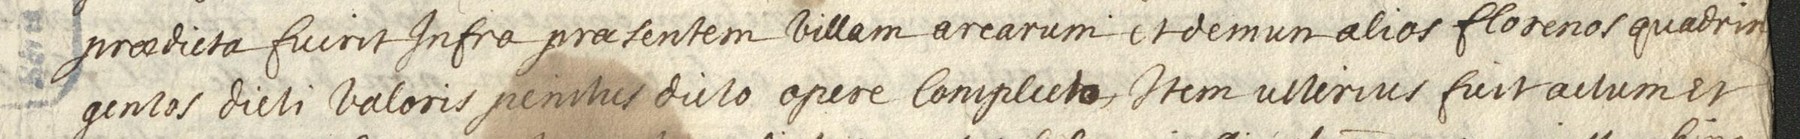 prædicta fuirit Infra præsentem Villam arearum et demun alios florenos quadrin
gentos dicti Valoris penitus dicto opere Completo, Item ulterius fuit actum et